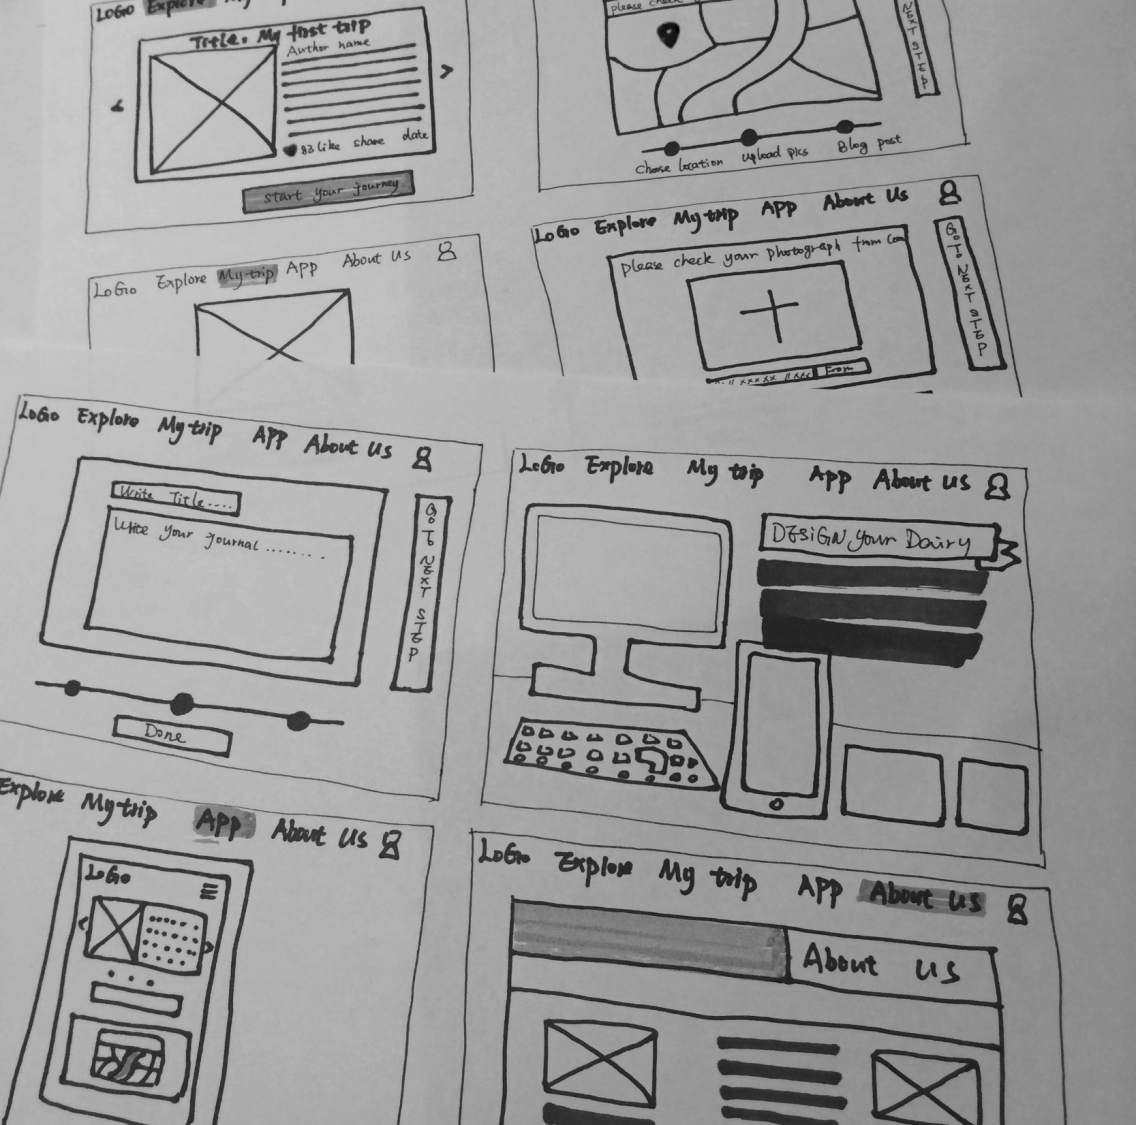 LoGo Explore My trip
Title. My first trip
Author name
83 like share date
Start your journey
please check
NEXT STEP
Chose location upload pics Blog post
LoGo Explore My trip App About Us
LoGo Explore My trip APP About Us
please check your photograph from Com
GO TO NEXT STEP
From
LoGo Explore My trip APP About Us
Write Title....
Write your journal ........
GO TO NEXT STEP
Done
LoGo Explore My trip App About us
DESiGN your Dairy
Explore My trip App About Us
LoGo
LoGo Explore My trip APP About us
About us